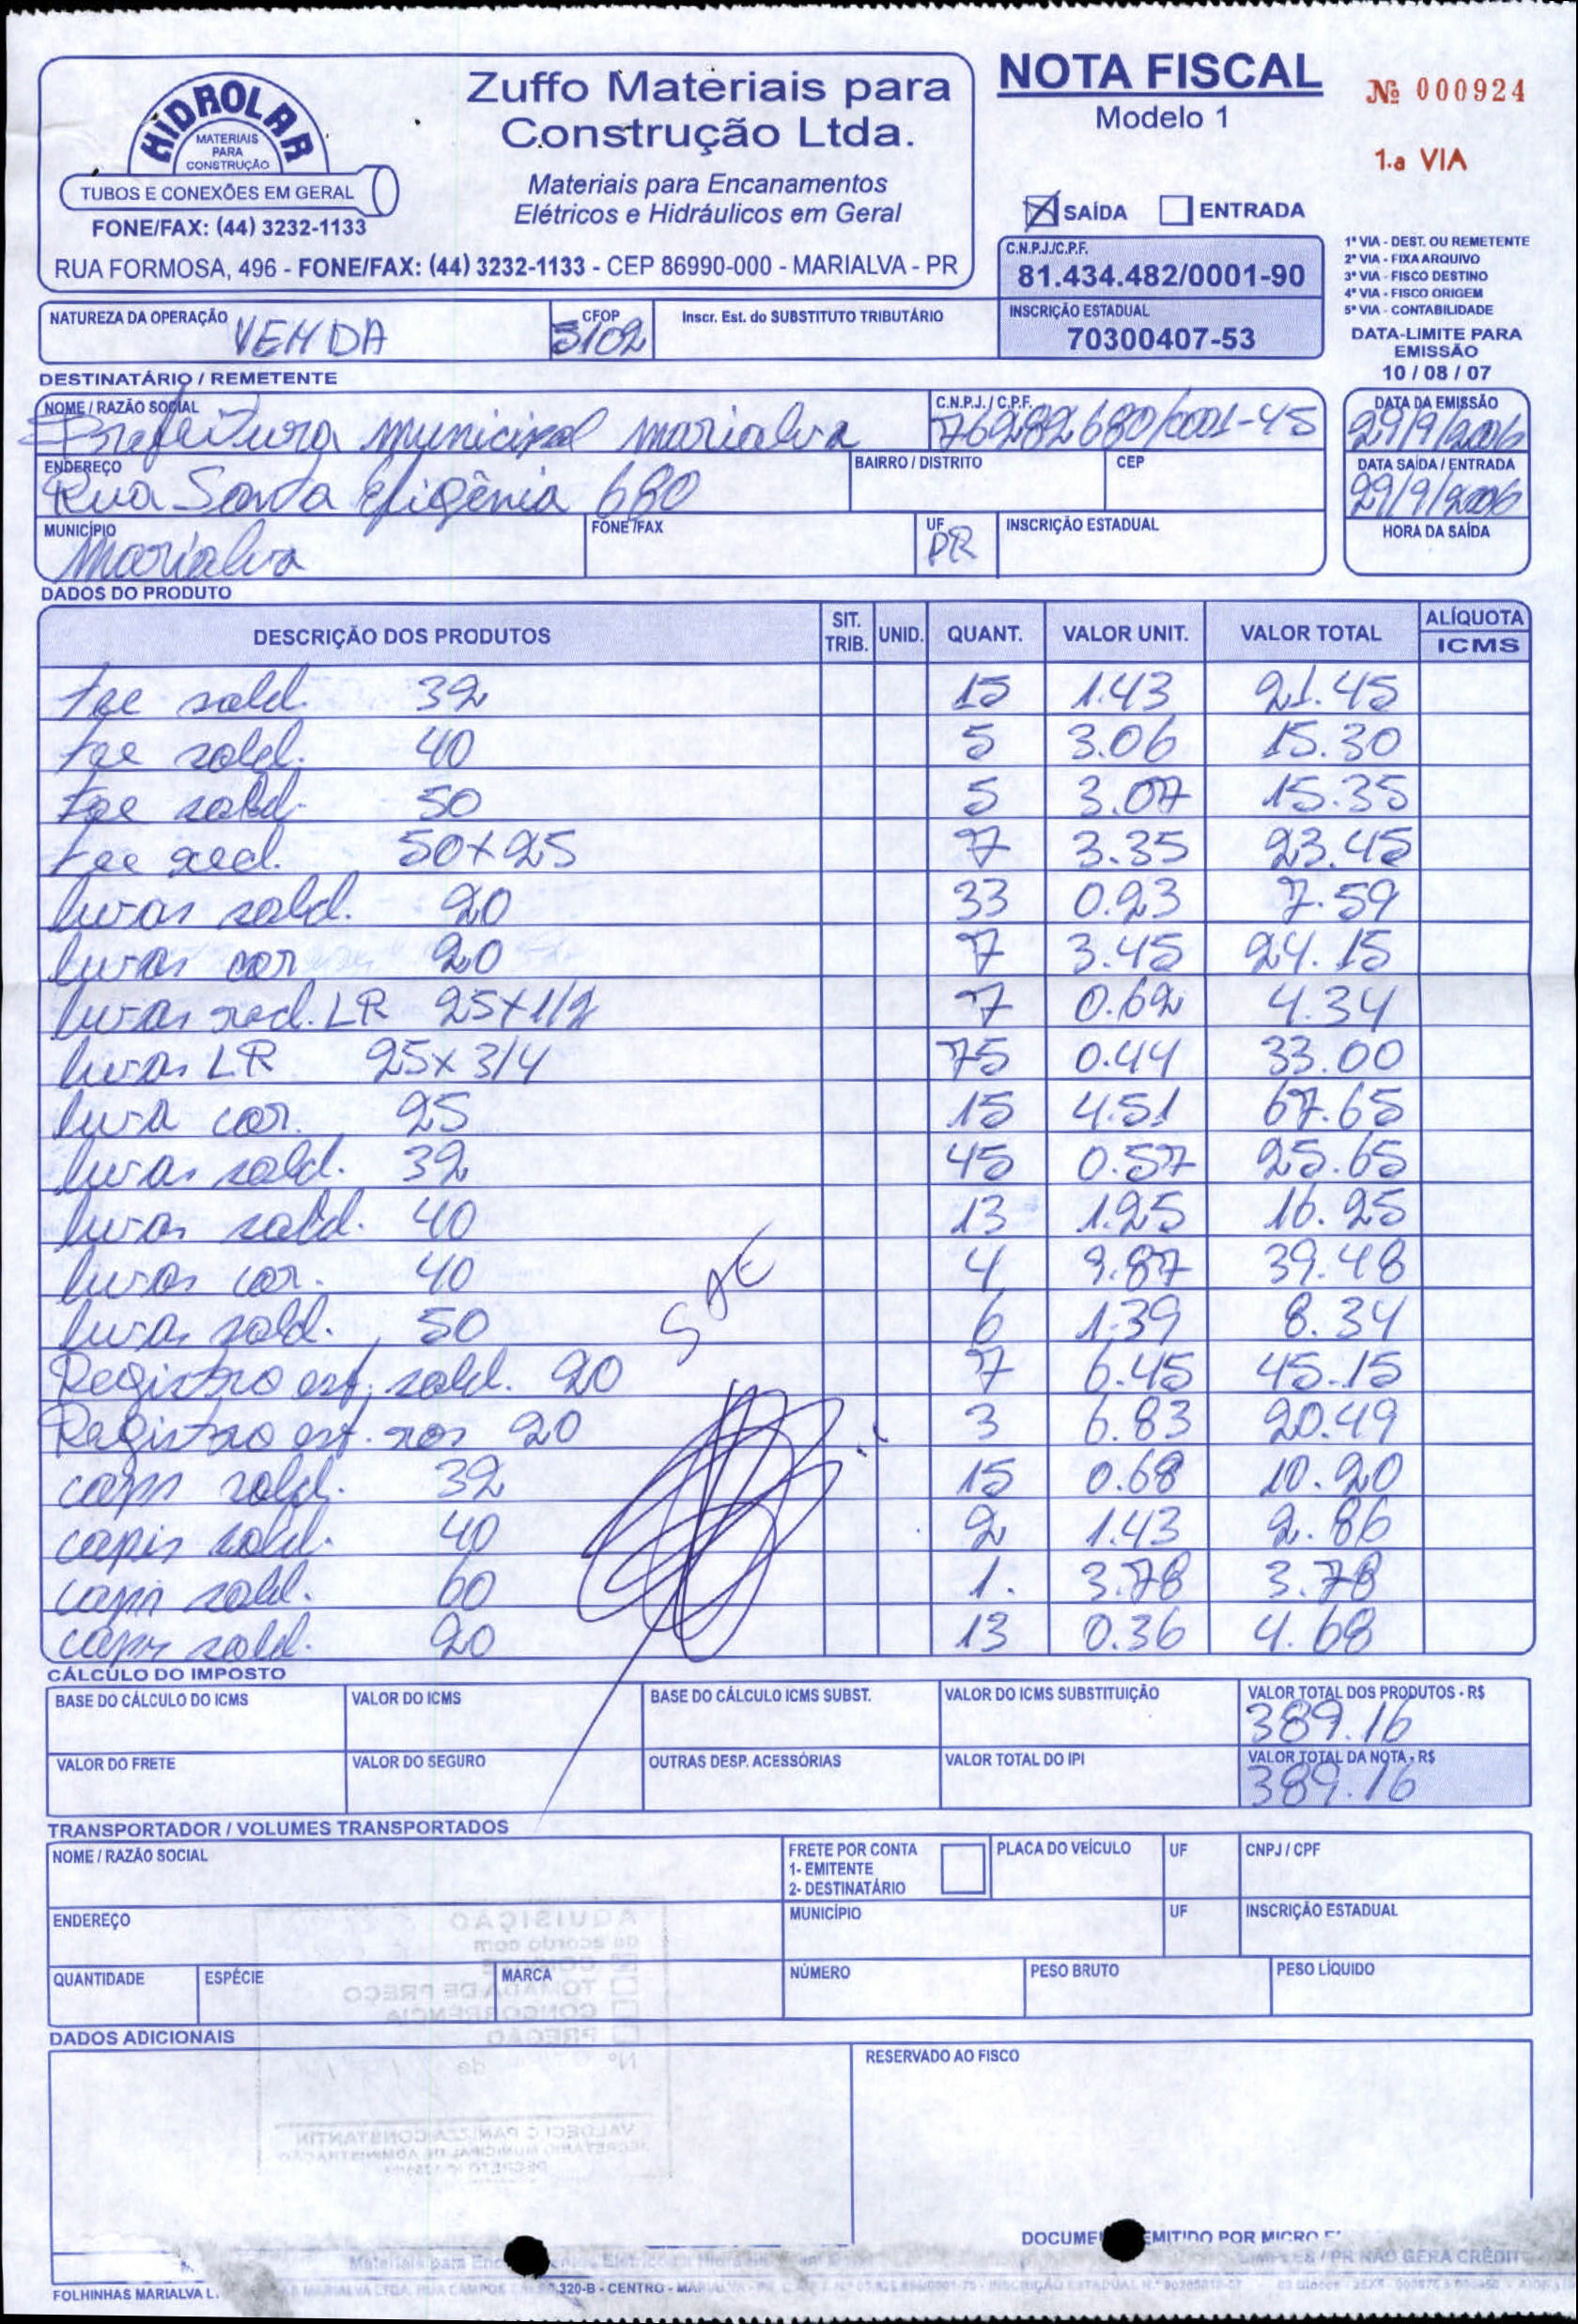 HIDROLAR
MATERIAIS
PARA
CONSTRUÇÃO
TUBOS E CONEXÕES EM GERAL
FONE/FAX: (44) 3232-1133
Zuffo Materiais para
Construção Ltda.
Materiais para Encanamentos
Elétricos e Hidráulicos em Geral
RUA FORMOSA, 496 - FONE/FAX: (44) 3232-1133 - CEP 86990-000 - MARIALVA - PR
NOTA FISCAL
Modelo 1
Nº 000924
1.a VIA
X SAÍDA ENTRADA
C.N.P.J./C.P.F.
81.434.482/0001-90
INSCRIÇÃO ESTADUAL
70300407-53
1ª VIA - DEST. OU REMETENTE
2ª VIA - FIXA ARQUIVO
3ª VIA - FISCO DESTINO
4ª VIA - FISCO ORIGEM
5ª VIA - CONTABILIDADE
DATA-LIMITE PARA
EMISSÃO
10 / 08 / 07
NATUREZA DA OPERAÇÃO VENDA
CFOP 5102
Inscr. Est. do SUBSTITUTO TRIBUTÁRIO
DESTINATÁRIO / REMETENTE
NOME / RAZÃO SOCIAL C.N.P.J. / C.P.F. DATA DA EMISSÃO
Prefeitura municipal marialva 76282680/0001-45 29/9/2006
ENDEREÇO BAIRRO / DISTRITO CEP DATA SAÍDA / ENTRADA
Rua Santa Efigênia 680 29/9/2006
MUNICÍPIO FONE/FAX UF INSCRIÇÃO ESTADUAL HORA DA SAÍDA
Marialva PR
DADOS DO PRODUTO
DESCRIÇÃO DOS PRODUTOS SIT. TRIB. UNID. QUANT. VALOR UNIT. VALOR TOTAL ALÍQUOTA ICMS
tee sold. 32 15 1.43 21.45
tee sold. 40 5 3.06 15.30
tee sold. 50 5 3.07 15.35
tee red. 50x25 7 3.35 23.45
luvas sold. 20 33 0.23 7.59
luvas cor 20 7 3.45 24.15
luvas red. LR 25x1/2 7 0.62 4.34
luvas LR 25x3/4 75 0.44 33.00
luva cor. 25 15 4.51 67.65
luvas sold. 32 45 0.57 25.65
luvas sold. 40 13 1.25 16.25
luvas cor. 40 4 9.87 39.48
luvas sold. 50 6 1.39 8.34
Registro esf. sold. 20 7 6.45 45.15
Registro esf. ros 20 3 6.83 20.49
caps sold. 32 15 0.68 10.20
capis sold. 40 2 1.43 2.86
caps sold. 60 1. 3.78 3.78
caps sold. 20 13 0.36 4.68
SAE
CÁLCULO DO IMPOSTO
BASE DO CÁLCULO DO ICMS VALOR DO ICMS BASE DO CÁLCULO ICMS SUBST. VALOR DO ICMS SUBSTITUIÇÃO VALOR TOTAL DOS PRODUTOS - R$
389.16
VALOR DO FRETE VALOR DO SEGURO OUTRAS DESP. ACESSÓRIAS VALOR TOTAL DO IPI VALOR TOTAL DA NOTA - R$
389.16
TRANSPORTADOR / VOLUMES TRANSPORTADOS
NOME / RAZÃO SOCIAL
FRETE POR CONTA
1- EMITENTE
2- DESTINATÁRIO
PLACA DO VEÍCULO UF CNPJ / CPF
ENDEREÇO MUNICÍPIO UF INSCRIÇÃO ESTADUAL
QUANTIDADE ESPÉCIE MARCA NÚMERO PESO BRUTO PESO LÍQUIDO
DADOS ADICIONAIS
RESERVADO AO FISCO
AQUISIÇÃO
de acordo com
TOMADA DE PREÇO
CONCORRÊNCIA
PREGÃO
Nº de
POR MICRO
NÃO GERA CRÉDITO
FOLHINHAS MARIALVA
320-B - CENTRO